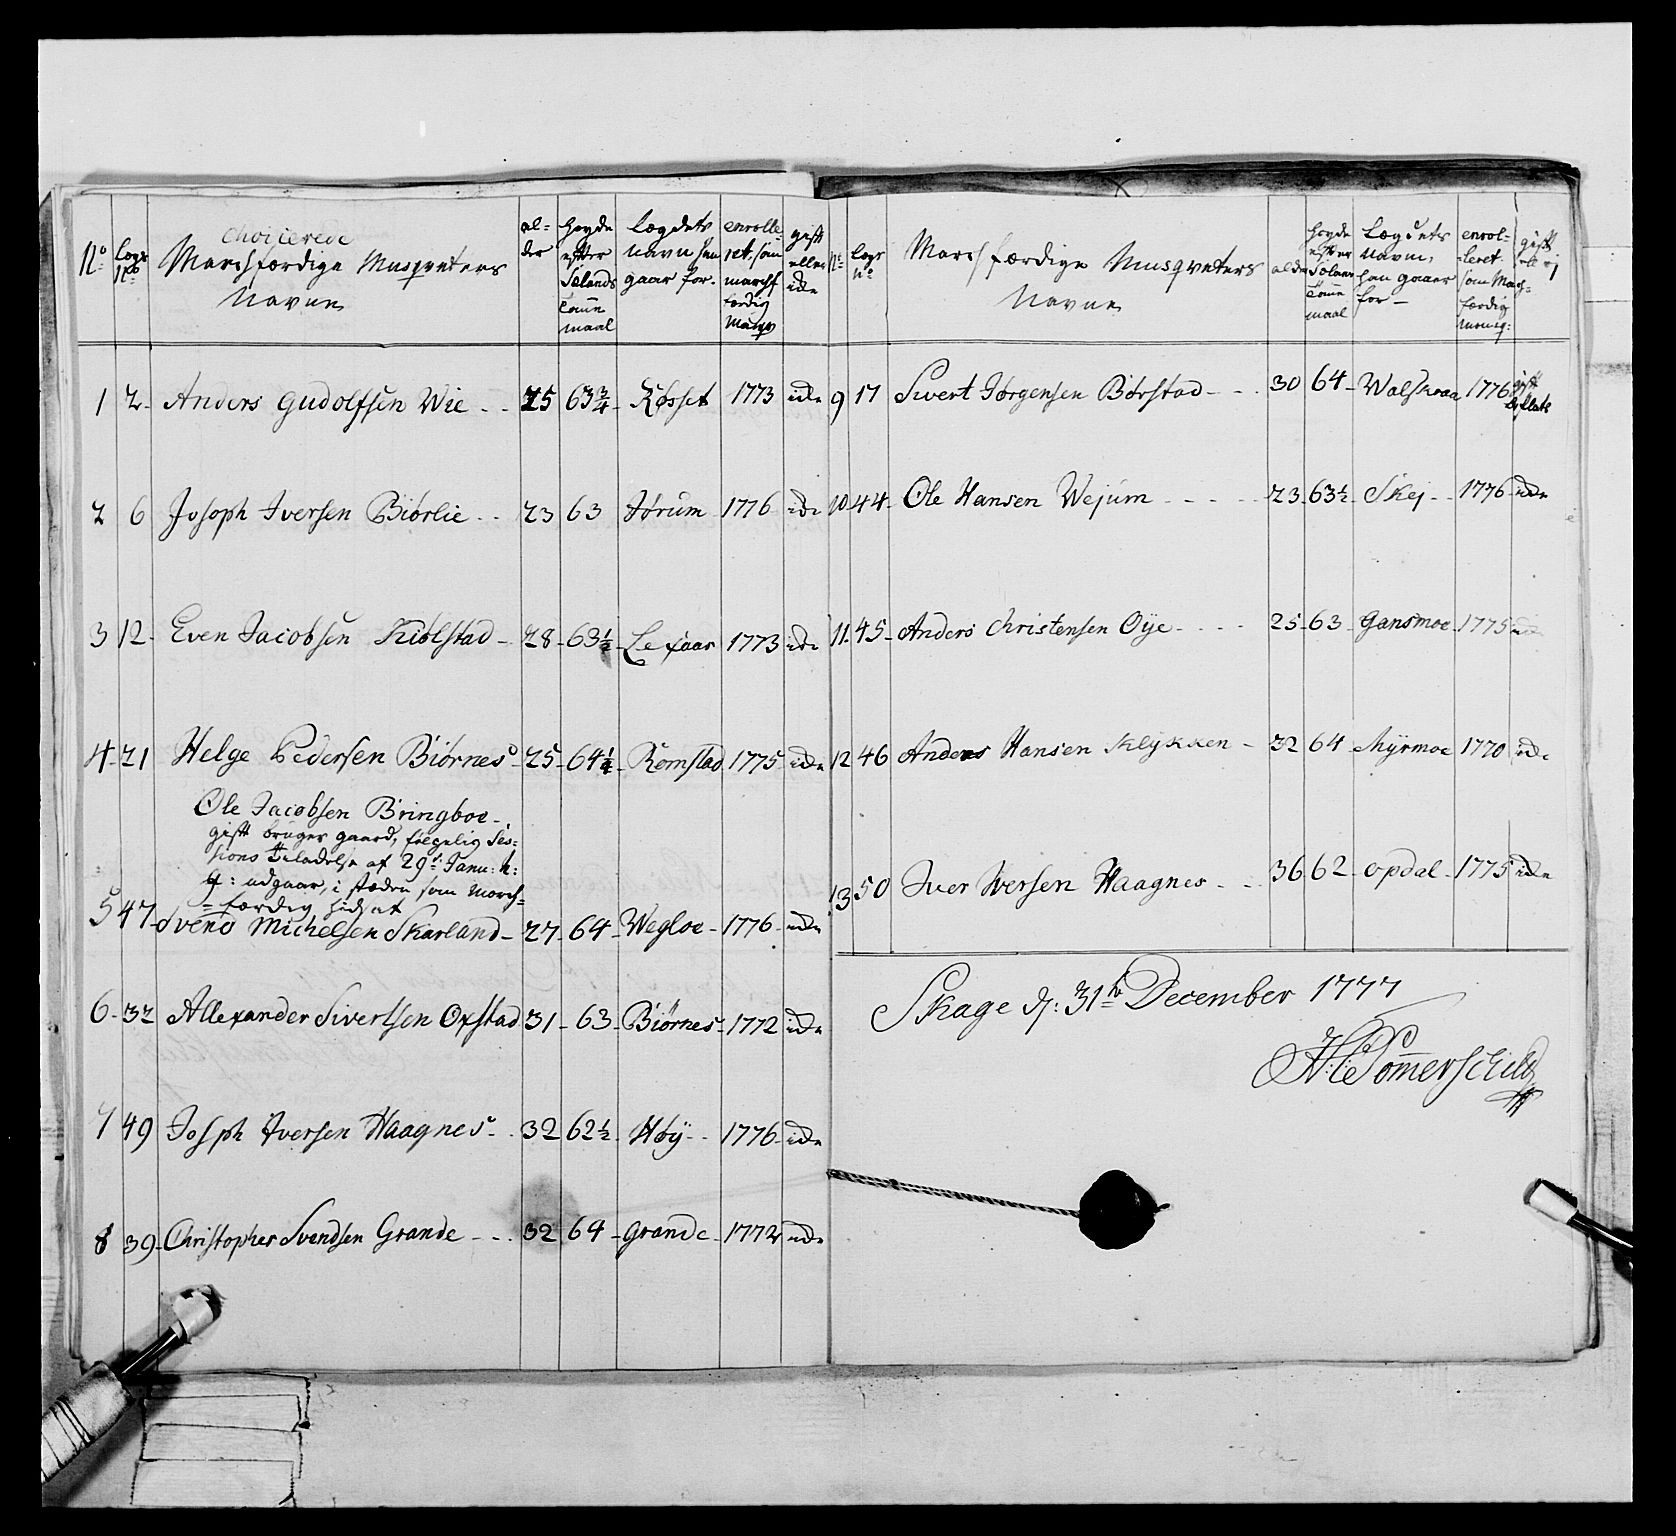 No
Lægs No
Choisierede
Marschfærdige Musqveters
Navne
al-
der
høyde
efter
Sælands
tomme
maal
Lægdets
navn han
gaar for.
enrolle-
ret som
marchf
færdig
Musqv
gift
eller
icke
1 2 Anders Gudolfsen Wie 25 63 3/4 Røsset 1773 icke
2 6 Joseph Iversen Biørlie 23 63 Jørum 1776 icke
3 12 Even Jacobsen Kiølstad 28 63 1/2 Lexaas 1773 icke
4 21 Helge Pedersen Biørnes 25 64 1/4 Romstad 1775 icke
Ole Jacobsen Bringboe
gift bruger gaard, følgelig Ses-
sions Tiladelse af 29de Janu: h:
a: udgaar, i stæden som March-
=færdig hidsat
5 47 Svend Michelsen Skarland 27 64 Wegloe 1776 icke
6 32 Allexander Sivertsen Oxstad 31 63 Biørnes 1772 icke
7 49 Joseph Iversen Haagnes 32 62 1/2 Høÿ 1776 icke
8 39 Christopher Svendsen Grande 32 64 Grande 1772 icke
No
Lægs
No
Marschfærdige Musqveters
Navne
alder
høyde
efter
Sælans
tomme
maal
Lægdets
navn,
han gaaer
for
enrol-
leret
som Mar-
færdig
musq:
gift
ell: ej
9 17 Sivert Jørgensen Børstad 30 64 Walskraa 1776 gift
10 44 Ole Hansen Wejum 23 63 1/2 Skej 1776 icke
11 45 Anders Christensen Oÿe 25 63 Gansmoe 1775 icke
12 46 Anders Hansen Klÿkken 32 64 Mÿrmoe 1770 icke
13 50 Iver Iversen Haagnes 36 62 Opdal 1775 icke
Skage d: 31te December 1777
H: C Sommerschild